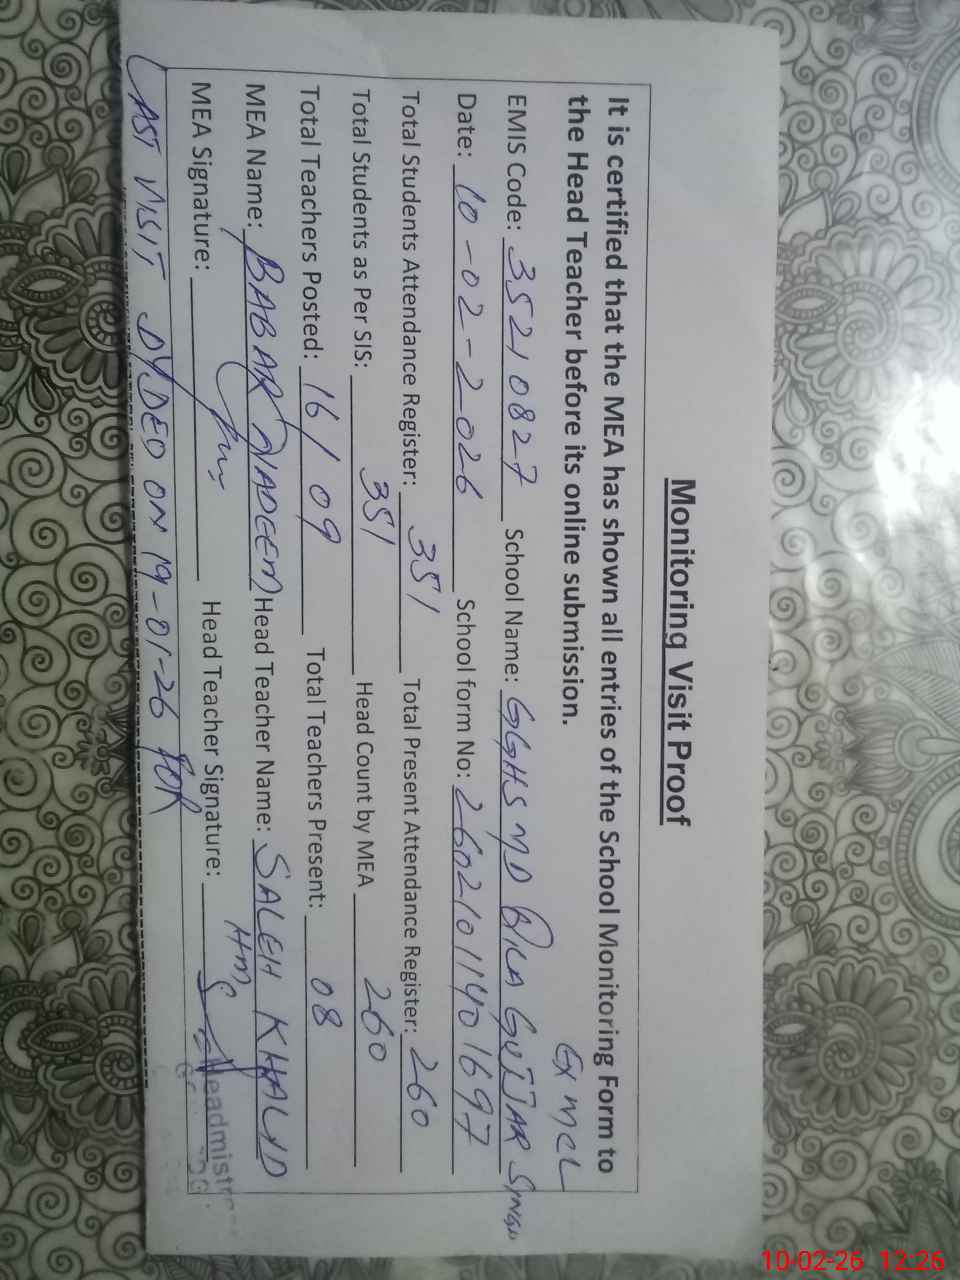 Monitoring Visit Proof
It is certified that the MEA has shown all entries of the School Monitoring Form to
the Head Teacher before its online submission.
EX MCL
EMIS Code: 35210827 School Name: GGHS MD QILA GUJJAR SINGH
Date: 10-02-2026 School form No: 26021011401697
Total Students Attendance Register: 351 Total Present Attendance Register: 260
Total Students as Per SIS: 351 Head Count by MEA 260
Total Teachers Posted: 16/09 Total Teachers Present: 08
MEA Name: BABAR NADEEM Head Teacher Name: SALEH KHALID
HM
MEA Signature: Head Teacher Signature:
Headmistr
LAST VISIT DYDEO ON 19-01-26 FOR
10-02-26 12:26